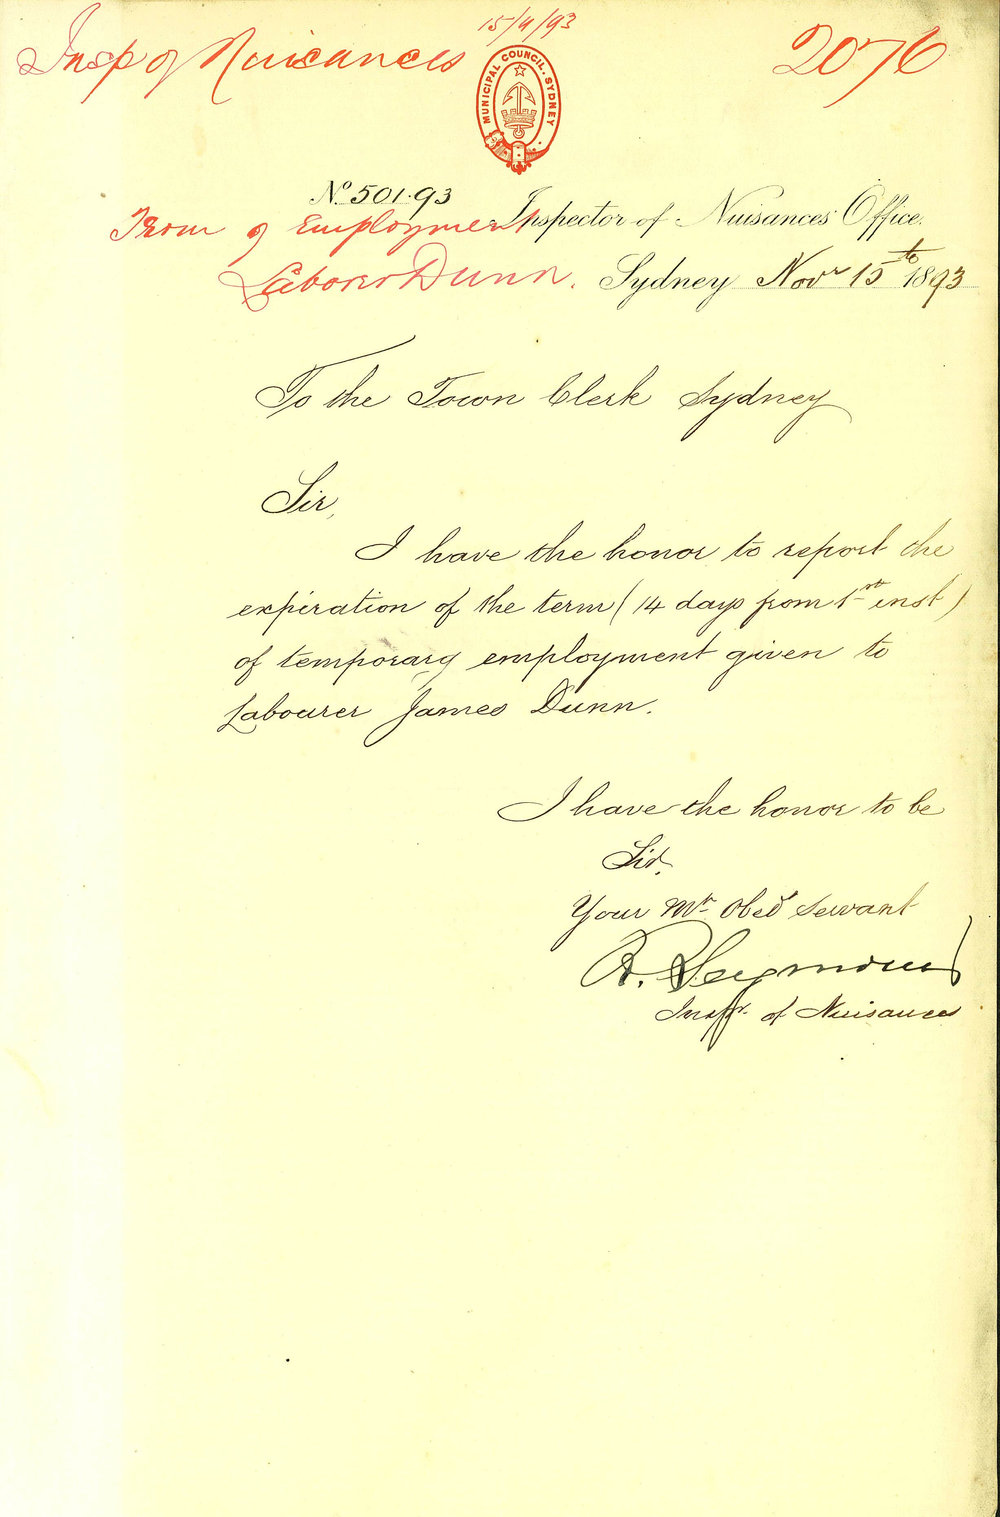 15/9/93
Insp of Nuisances
2076
MUNICIPAL COUNCIL. SYDNEY
No. 501.93
Inspector of Nuisances' Office.
Term of Employment
Laborer Dunn.
Sydney Novr 15th 1893
To the Town Clerk Sydney
Sir,
I have the honor to report the
expiration of the term (14 days from 1st inst)
of temporary employment given to
Labourer James Dunn.
I have the honor to be
Sir,
Your Mt. Obed Servant
R. Seymour
Inspr. of Nuisances